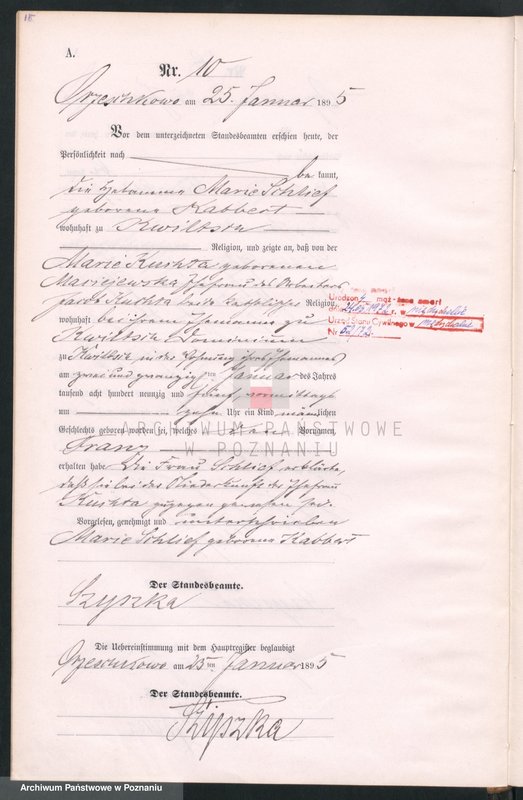 18
A.
Nr. 10
Orzeschkowo am 25. Januar 1895
Vor dem unterzeichneten Standesbeamten erschien heute, der
Persönlichkeit nach
be kannt,
die Hebamme Marie Schlief
geborene Kabbert
wohnhaft zu Kwiltsch
Religion, und zeigte an, daß von der
Marie Kuchta geborenen
Maciejewska Ehefrau des
Kuchta beide katholischer Religion,
wohnhaft bei ihrem Ehemanne zu
Kwiltsch Dominium
zu Kwiltsch in der Wohnung ihres Ehemannes
am zwei und zwanzig ten Januar des Jahres
tausend acht hundert neunzig und fünf, vormittags
um zehn Uhr ein Kind männlichen
Geschlechts geboren worden sei, welches den Vornamen
Franz
erhalten habe. Die Frau Schlief erklärte,
daß sie bei der Niederkunft der Ehefrau
Kuchta zugegen gewesen sei.
Vorgelesen, genehmigt und unterschrieben
Marie Schlief geborene Kabbert
Der Standesbeamte.
Szyszka
Die Uebereinstimmung mit dem Hauptregister beglaubigt
Orzeschkowo am 25 ten Januar 1895
Der Standesbeamte.
Szyszka
Urodzon y mąż-żona zmarł
dnia r. w
Urząd Stanu Cywilnego w
Nr
ARCHIWUM PAŃSTWOWE
W POZNANIU
Archiwum Państwowe w Poznaniu